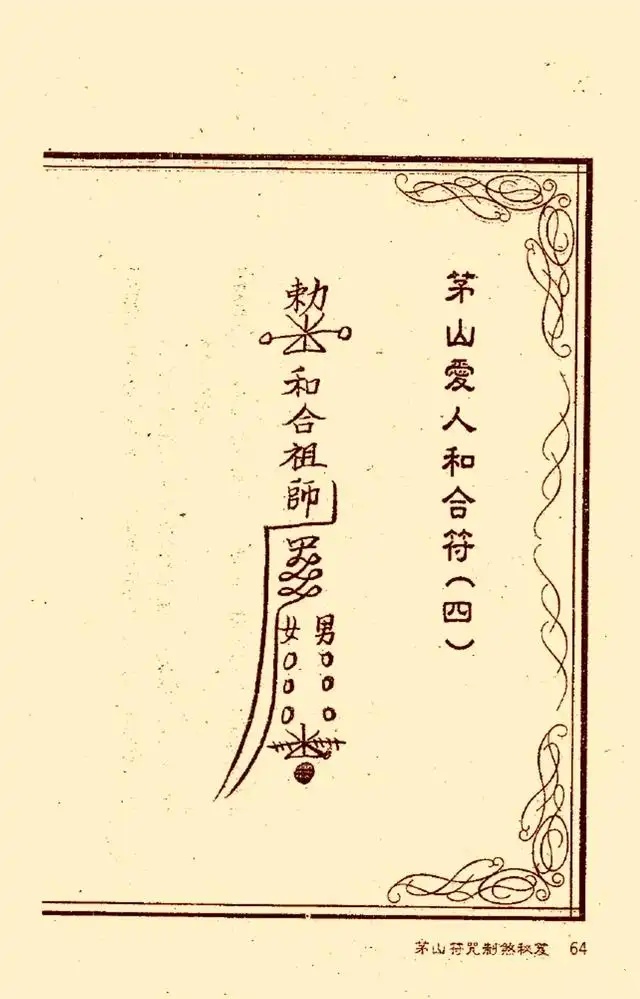 茅山愛人和合符(四)
勅
和合祖師
男○○○
女○○○
茅山符咒制煞秘笈 64